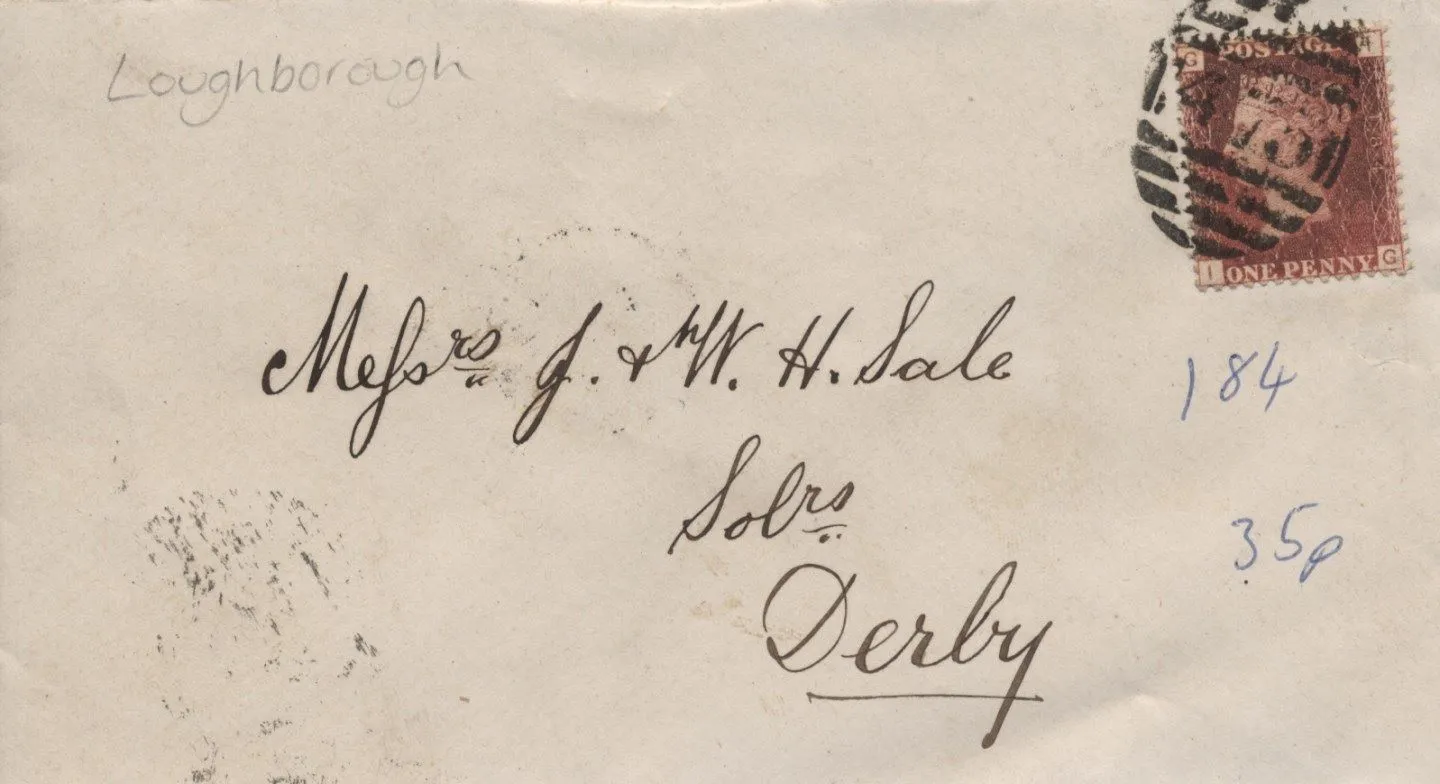 Loughborough
G POSTAGE
I ONE PENNY G
Messrs J. & W. H. Sale
184
Solrs
35p
Derby